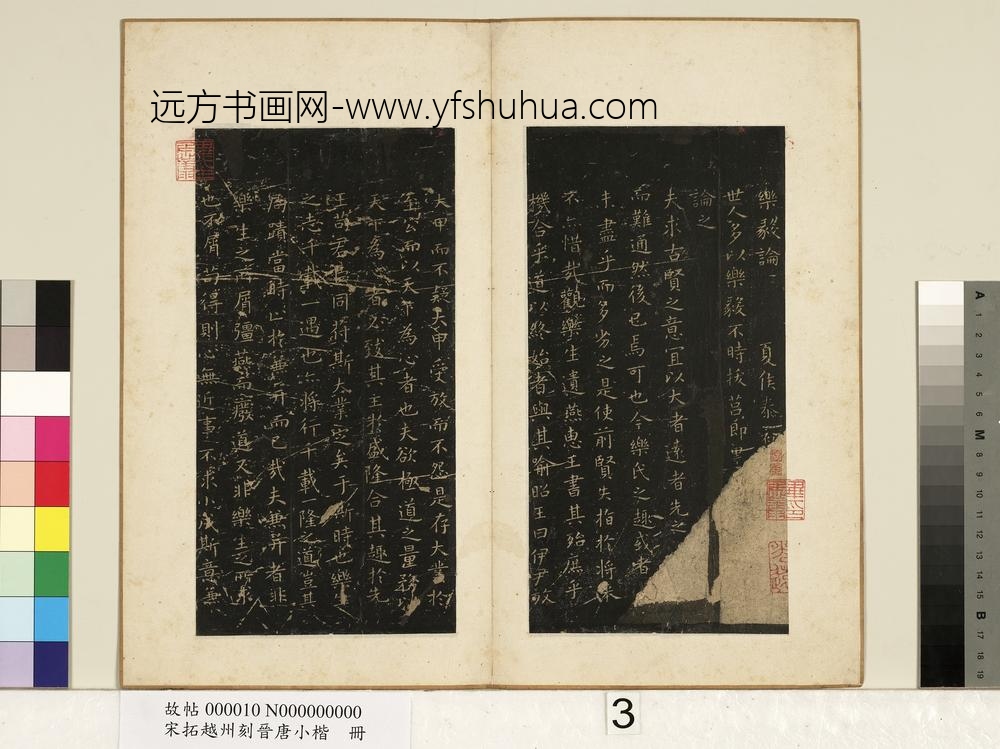 远方书画网-www.yfshuhua.com
樂毅論
夏侯泰
世人多以樂毅不時拔莒即
論之
夫求古賢之意宜以大者遠者先之
而難通然後已焉可也今樂氏之趣或者
未盡乎而多劣之是使前賢失指於將來
不惜哉觀樂生遺燕惠王書其殆庶乎
機合乎道以終始者與其喻昭王曰伊尹放
大甲而不疑大甲受放而不怨是存大業於
至公而以天下為心者也夫欲極道之量務以
天下為心者必致其主於盛隆合其趣於先
王苟君臣同符斯大業定矣于斯時也樂生
之志千載一遇也亦將行千載一隆之道豈其
局蹟當時止於兼并而已哉夫兼并者非
樂生之所屑彊燕而廢道又非樂生之所求
也不屑苟得則心無近事不求小成斯意兼
故帖 000010 N000000000
宋拓越州刻晉唐小楷 冊
3
A 1 2 3 4 5 6 M 8 9 10 11 12 13 14 15 B 17 18 19